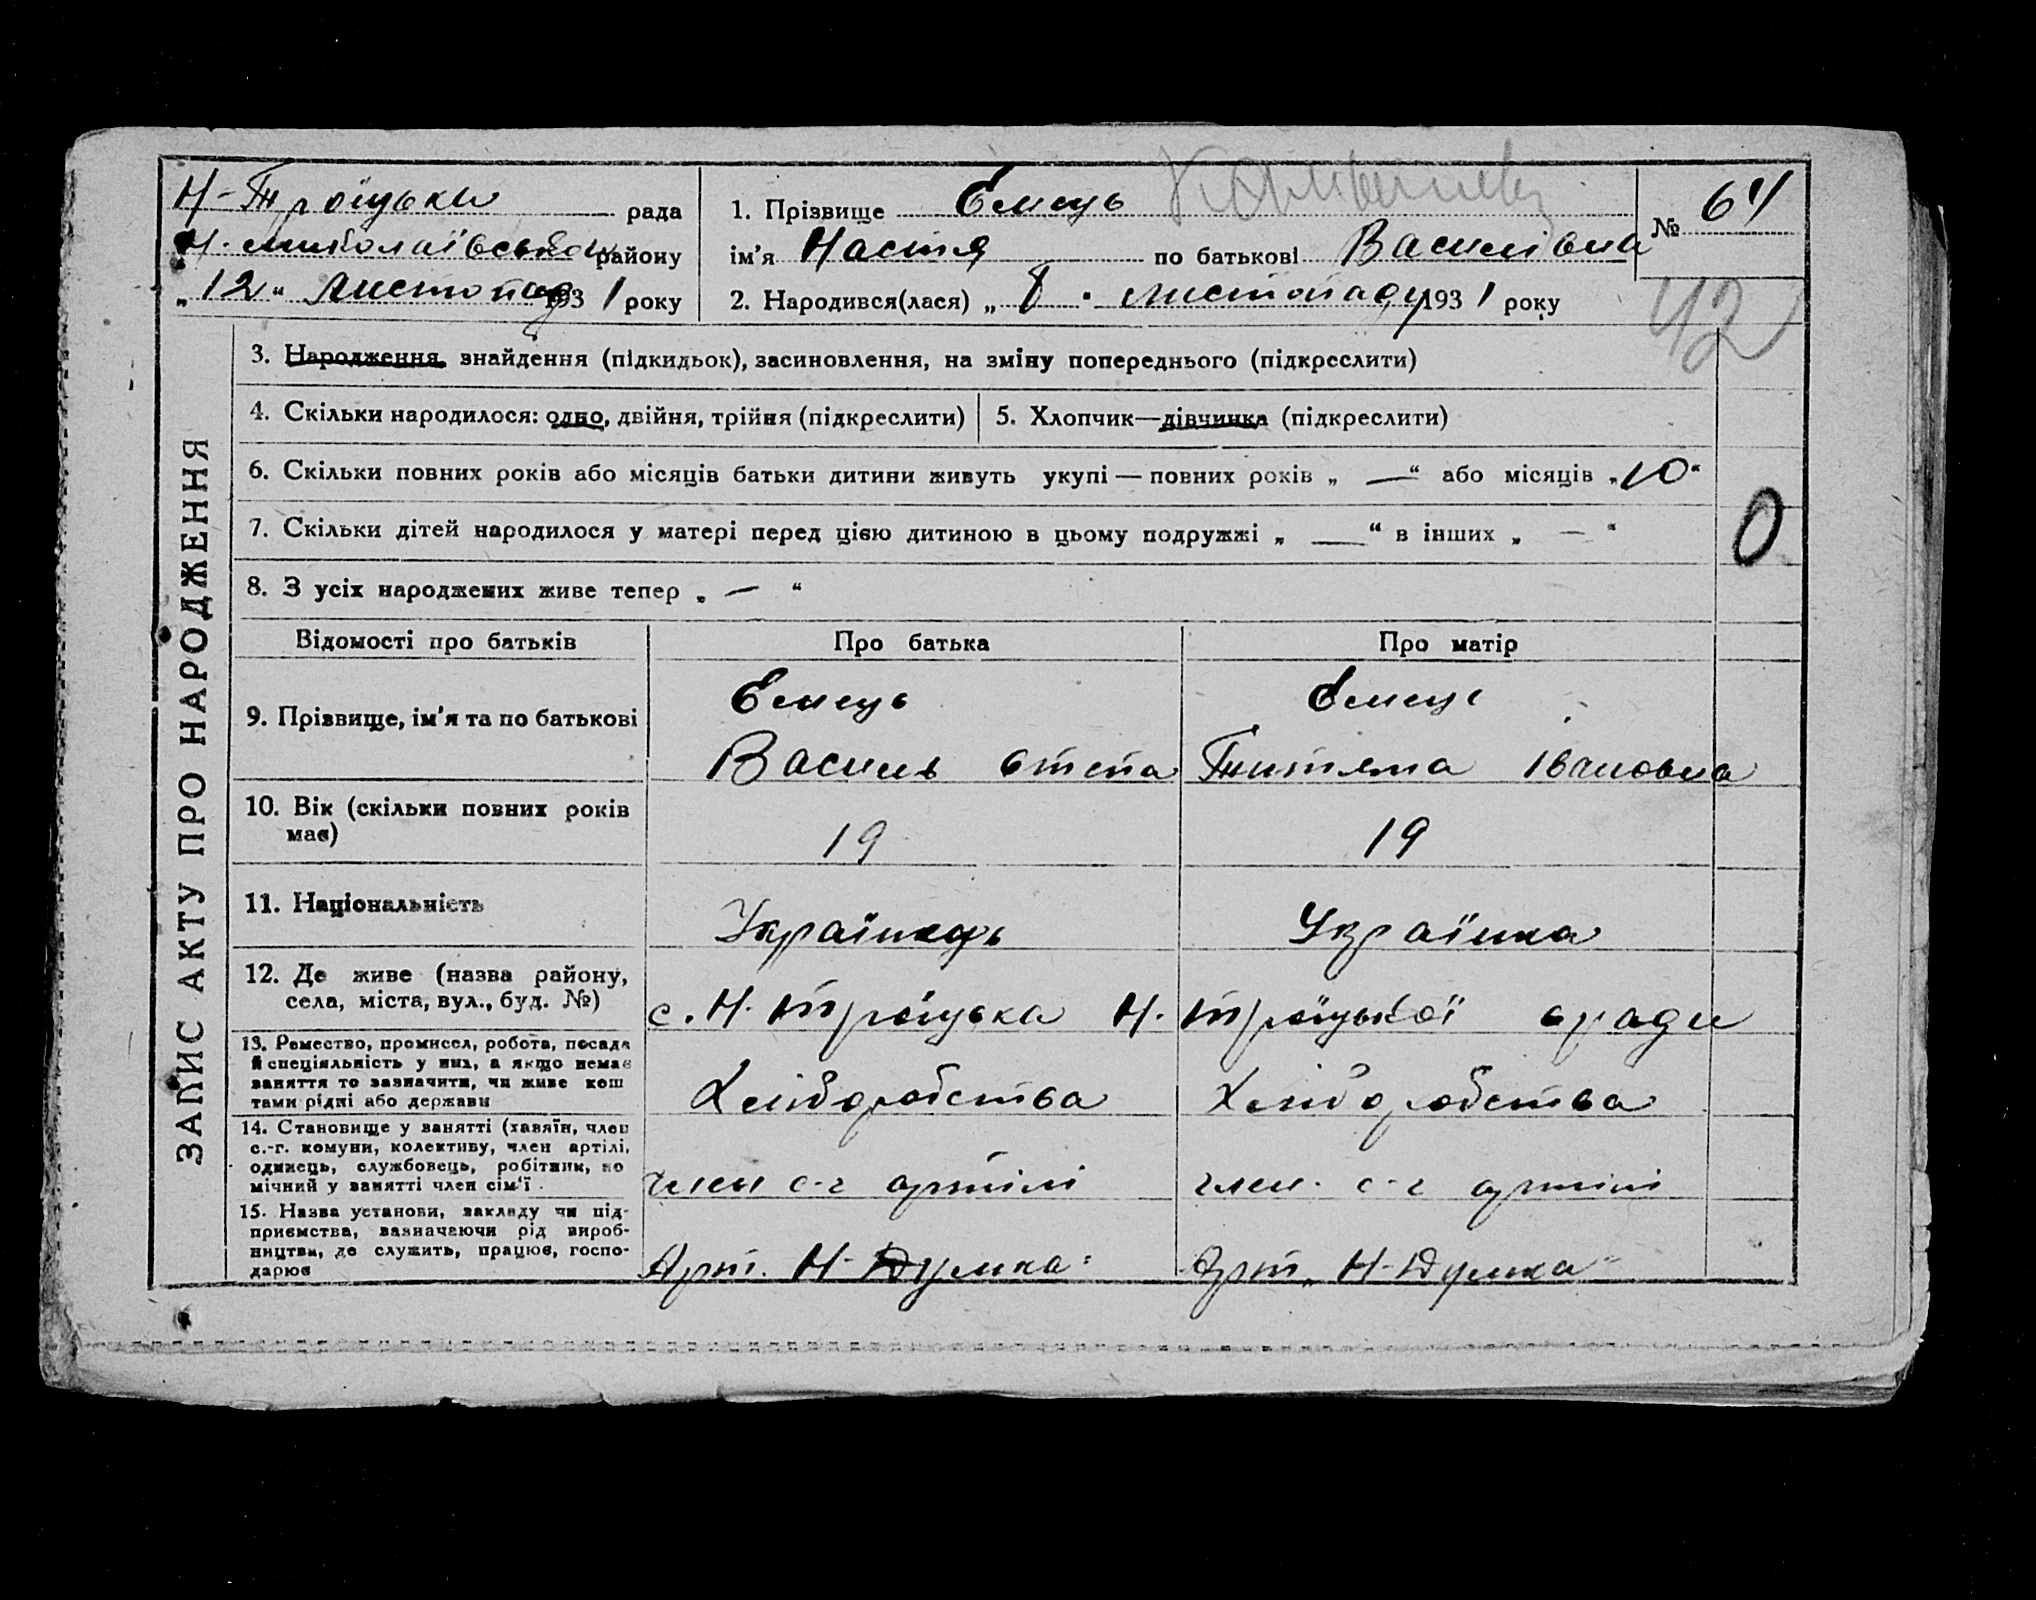 Н-Троїцька рада
Н. Миколаївського району
„12“ Листопад 1931 року
1. Прізвище Емець
ім'я Настя по батькові Василівна
№ 64
2. Народився(лася) „8“ листопаду 1931 року
42
3. Народження, знайдення (підкидьок), засиновлення, на зміну попереднього (підкреслити)
4. Скільки народилося: одно, двійня, трійня (підкреслити)
5. Хлопчик—дівчинка (підкреслити)
6. Скільки повних років або місяців батьки дитини живуть укупі — повних років „ — “ або місяців „10“
7. Скільки дітей народилося у матері перед цією дитиною в цьому подружжі „ — “ в інших „ — “
0
8. З усіх народжених живе тепер „ — “
ЗАПИС АКТУ ПРО НАРОДЖЕННЯ
Відомості про батьків
Про батька
Про матір
9. Прізвище, ім'я та по батькові
Емець
Василь
Емець
Івановна
10. Вік (скільки повних років
має)
19
19
11. Національність
Українець
Українка
12. Де живе (назва району,
села, міста, вул., буд. №)
с. Н. Троїцька Н. Троїцької сради
13. Ремество, промисел, робота, посада
й спеціяльність у них, а якщо немає
заняття то зазначити, чи живе кош
тами рідні або держави
Хліборобства
Хліборобства
14. Становище у занятті (хазяїн, член
с.-г. комуни, колективу, член артілі,
одинець, службовець, робітник, по
мічний у занятті член сім'ї
член с-г артілі
член. с-г артілі
15. Назва установи, закладу чи під-
приємства, зазначаючи рід вироб-
ництва, де служить, працює, госпо-
дарює
Арт. Н-Думка
Арт. Н-Думка